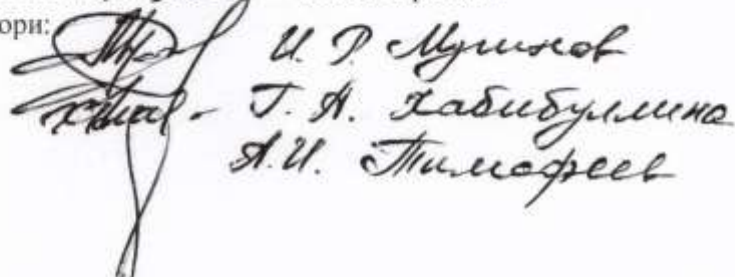 ори:
И. Р. Мушков
Г. А. Хабибуллина
А. И. Тимофеев